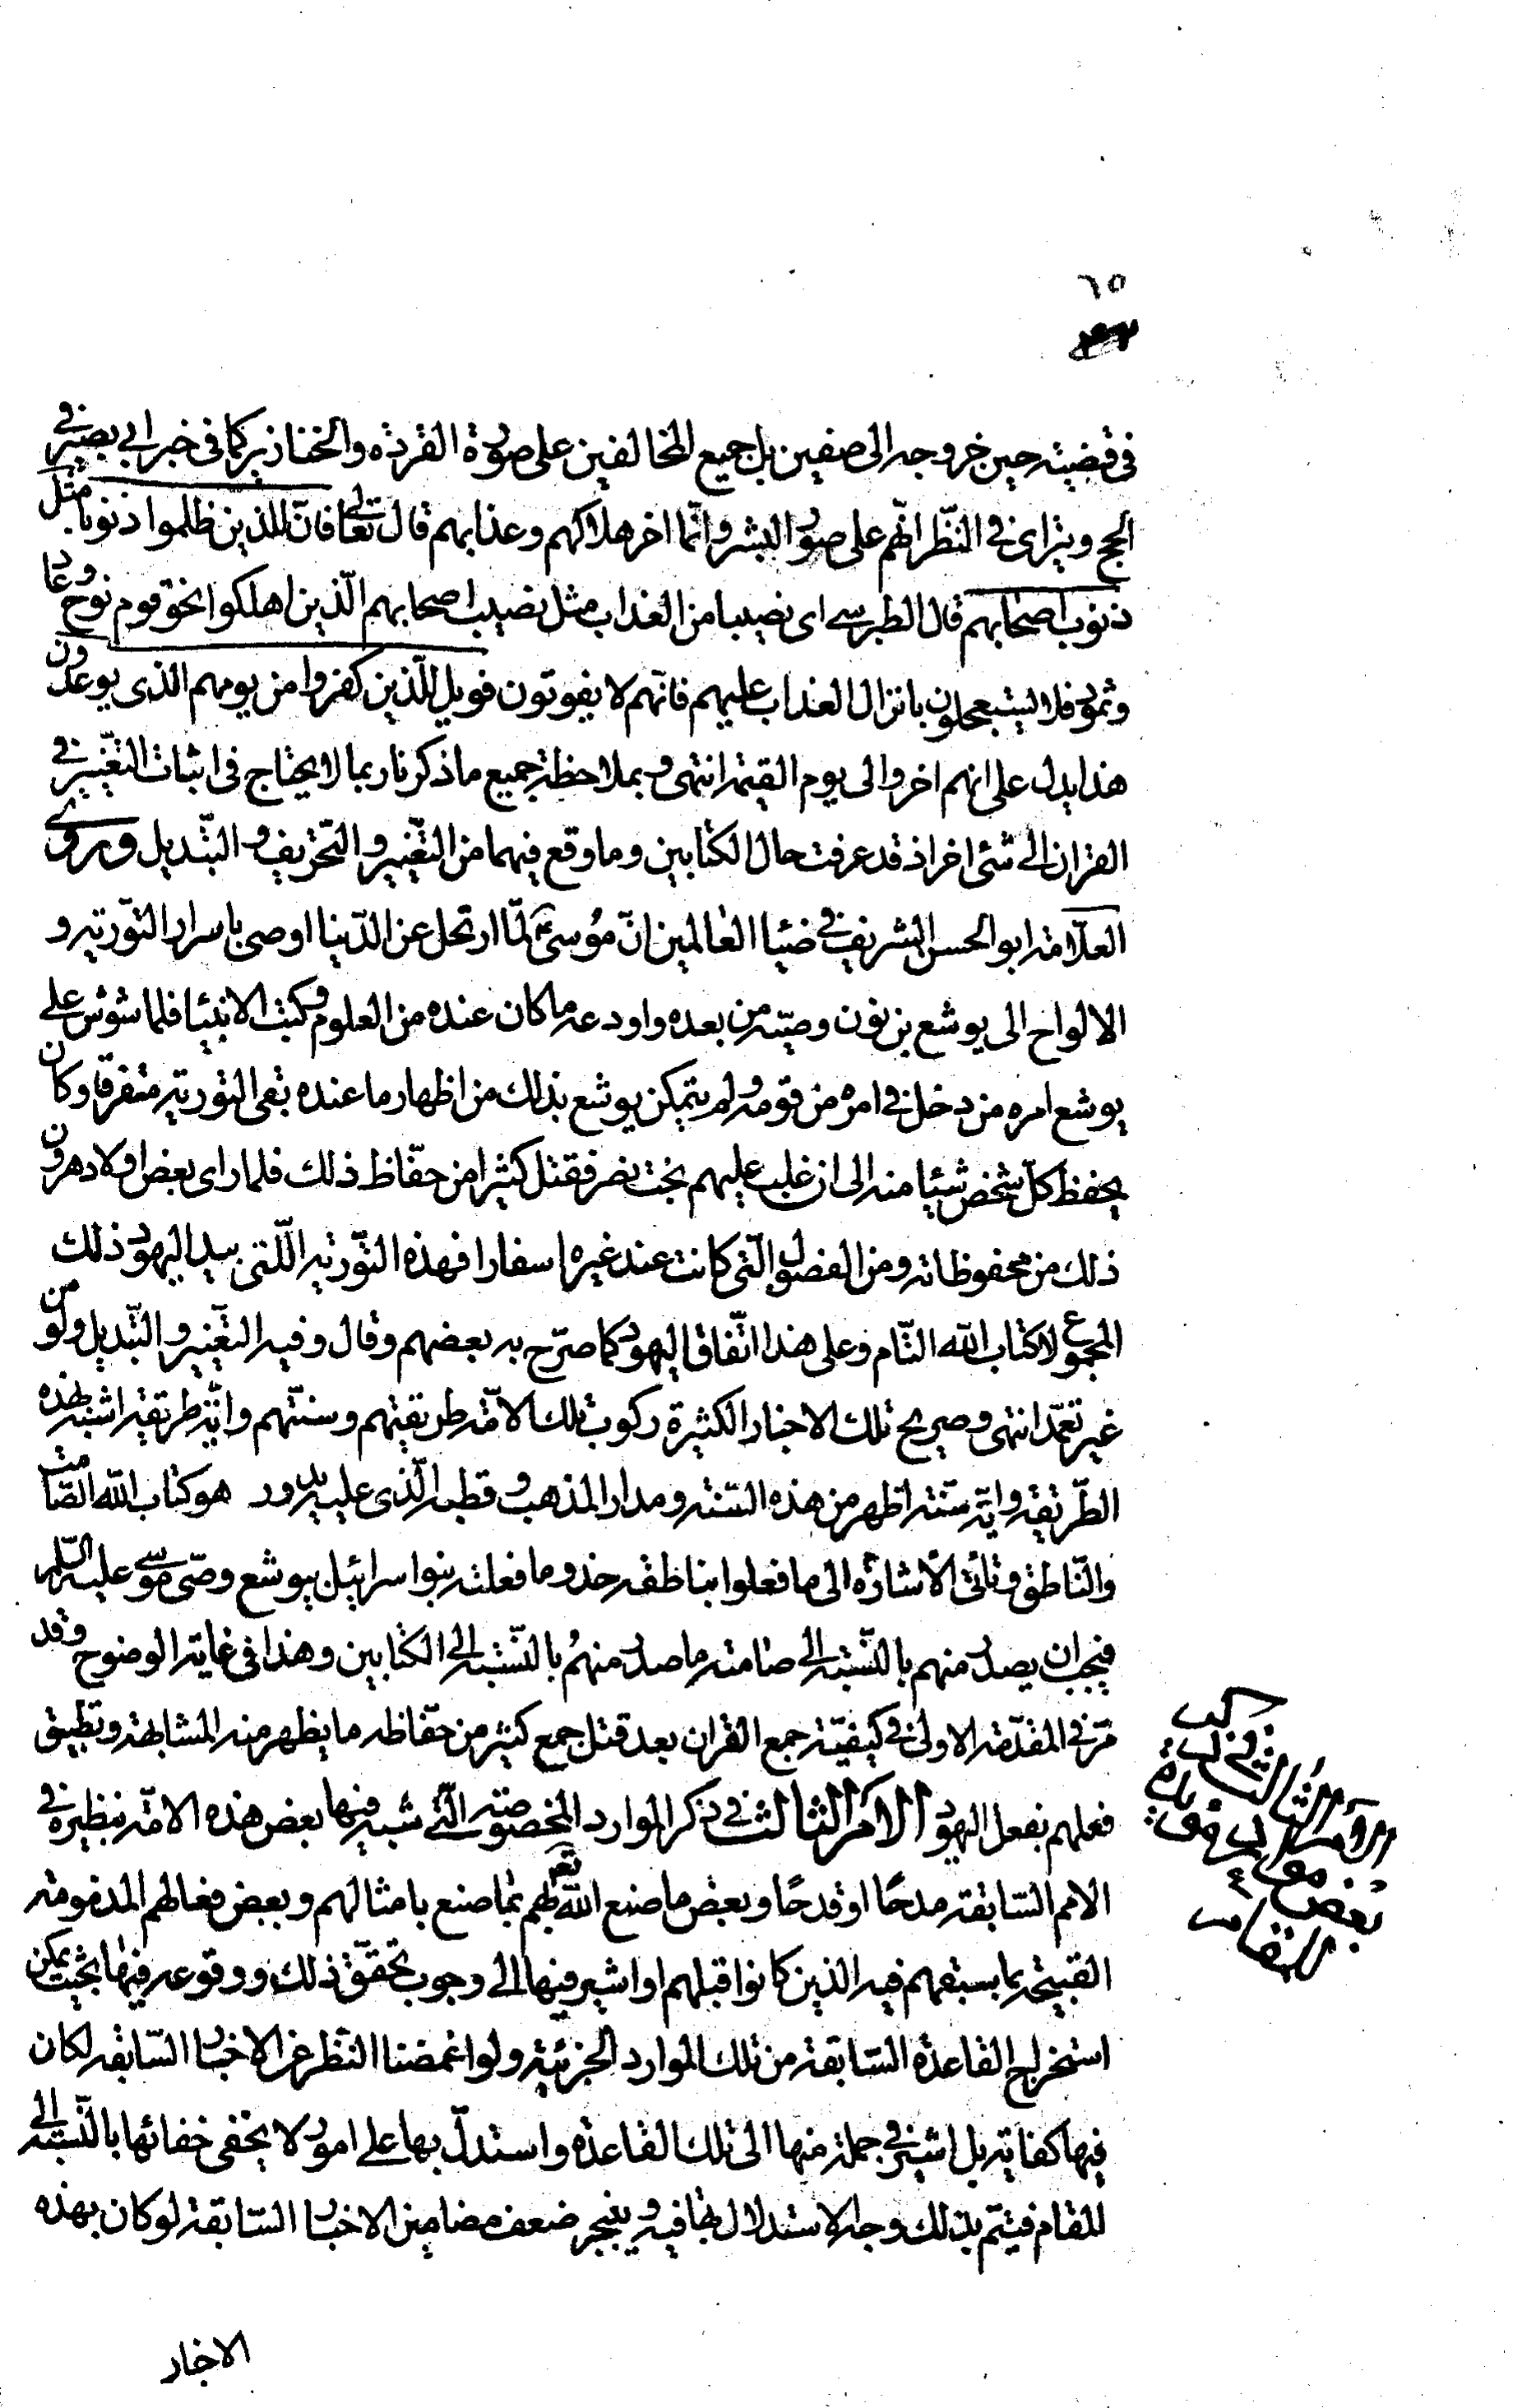 ٦٥
فى قضيته حين خروجه الى صفين بل جميع المخالفين على صورة القردة والخنازير كما فى خبر ابى بصير فى
الحج ويترائى فى النظر انهم على صور البشر وانّما اخر هلاكهم وعذابهم قال تعالى فانّ للذين ظلموا ذنوبا مثل
ذنوب اصحابهم قال الطبرسى اى نصيبا من العذاب مثل نصيب اصحابهم الّذين اهلكوا نحو قوم نوح وعاد
وثمود فلا يستعجلون بانزال العذاب عليهم فانّهم لا يفوتون فويل للّذين كفروا من يومهم الذى يوعدون
هذا يدل على انهم اخروا الى يوم القيمة انتهى وبملاحظة جميع ما ذكرنا ربما لا يحتاج فى اثبات التغيير فى
القران الى شئ اخر اذ قد عرفت حال الكتابين وما وقع فيهما من التغيير والتحريف والتبديل وروى
العلّامة ابو الحسن الشريف فى ضياء العالمين انّ موسى ع لمّا ارتحل عن الدّنيا اوصى باسرار التّورية و
الالواح الى يوشع بن نون وصيّه من بعده واودعه ما كان عنده من العلوم وكتب الانبياء فلما شوش على
يوشع امره من دخل فى امره من قومه ولم يتمكن يوشع بذلك من اظهار ما عنده بقى التورية متفرقا وكان
يحفظ كلّ شخص شيئا منه الى ان غلب عليهم بخت نصر فقتل كثيرا من حفّاظ ذلك فلما راى بعض اولاد هرون
ذلك من محفوظاته ومن الفصول الّتى كانت عند غيره اسفارا فهذه التّورية اللّتى بيد اليهود ذلك
المجموع لا كتاب الله التّام وعلى هذا اتّفاق اليهود كما صرّح به بعضهم وقال وفيه التغيير والتّبديل ولو من
غير تعمّد انتهى وصريح تلك الاخبار الكثيرة ركوب تلك الامّة طريقتهم وسنتهم وايّة طريقة اشبه بهذه
الطّريقة وايّة سنّة اظهر من هذه السّنة ومدار المذهب وقطبه الّذى عليه يدور هو كتاب الله الصّامت
والنّاطق وتأتى الاشارة الى ما فعلوا بناطقه حذو ما فعلته بنوا اسرائيل بيوشع وصّى موسى عليه السّلم
فيجب ان يصدر منهم بالنّسبة الى صامته ما صدر منهم بالنّسبة الى الكتابين وهذا فى غاية الوضوح وقد
مرّ فى المقدّمة الاولى فى كيفيّة جمع القران بعد قتل جمع كثير من حفّاظه ما يظهر منه المشابهة وتطبيق
فعلهم بفعل اليهود الأمر الثالث فى ذكر الموارد المخصوصة الّتى شبه فيها بعض هذه الامّة بنظيره فى
الامم السّابقة مدحًا او قدحًا وبعض ما صنع الله تعالى بهم بما صنع بامثالهم وبعض فعالهم المذمومة
القبيحة بما سبقهم فيه الذين كانوا قبلهم او اشير فيها الى وجوب تحقّق ذلك ووقوعه فيها بحيث يمكن
استخراج القاعدة السّابقة من تلك الموارد الجزئية ولو اغمضنا النّظر عن الاخبار السّابقة لكان
فيها كفاية بل اشير فى جملة منها الى تلك القاعدة واستدلّ بها على امور لا يخفى خفائها بالنّسبة الى
المقام فيتم بذلك وجه الاستدلال بما فيه وينجبر ضعف مضامين الاخبار السّابقة لو كان بهذه
الاخبار
الأمر الثالث فى ذكر
بعض موارد